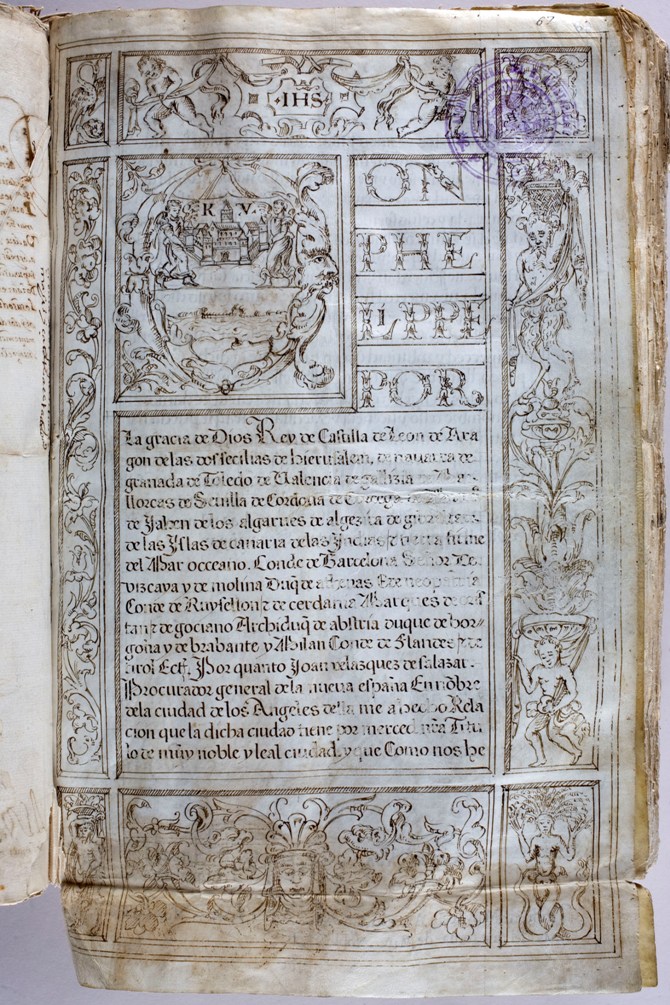 67
IHS
K V
ON
PHE
LIPPE
POR
La gracia de Dios Rey de Castilla de Leon de Ara
gon de las dos secilias de hierusalem, de nauarra de
granada de Toledo de Ualencia de gallizia de Ma-
llorcas de Seuilla de Cordoua de
de Jahen de los algarues de algezira de
de las Yslas de canaria de las Yndias
del Mar occeano. Conde de Barcelona Señor de
vizcaya y de molina Duq de athenas E de neopatria
Conde de Ruysellon E de cerdania Marques de oris
tan E de gociano Archiduq de abstria duque de bor-
goña y de brabante y Milan Conde de Flandes E de
tirol Ectª. Por quanto Joan velazquez de salazar.
Procurador general de la nueua españa En nōbre
de la ciudad de los Angeles della me a hecho Rela
cion que la dicha ciudad tiene por merced nrā Titu
lo de mūy noble y leal ciudad, y que Como nos he